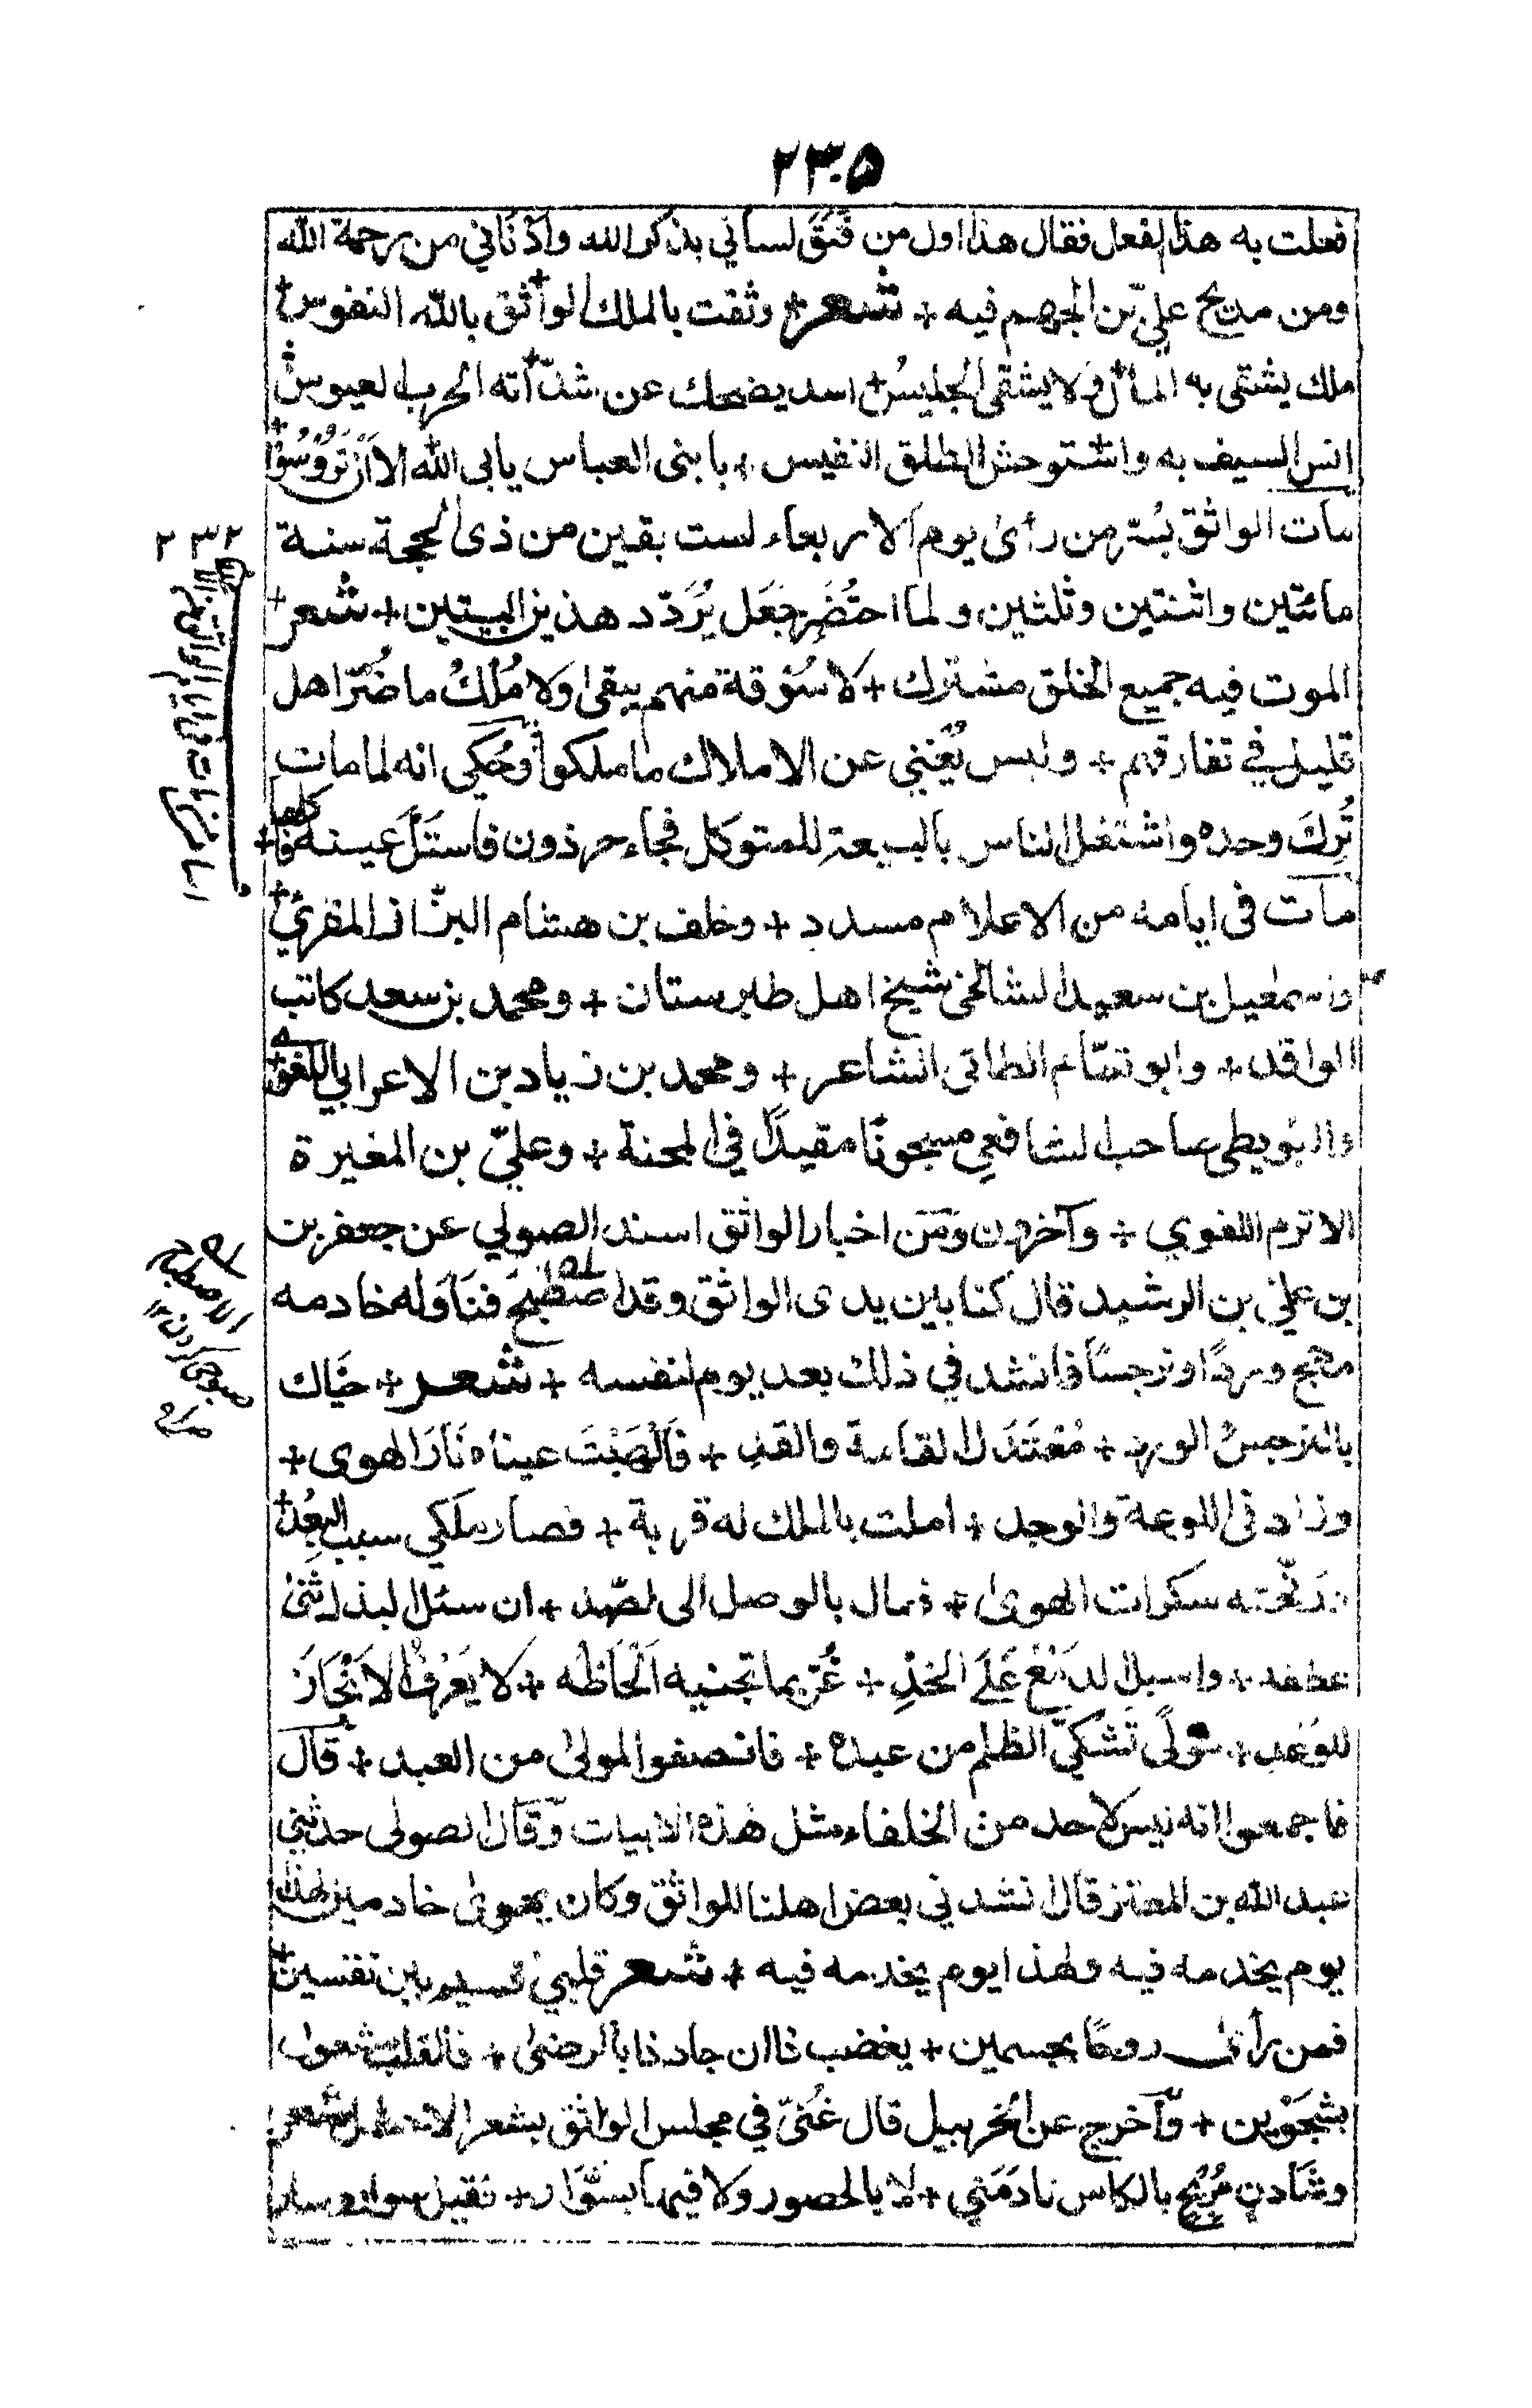 ٢٣٥
فعلت به هذا الفعل فقال هذا اول من فَتَقَ لساني بذكر الله وادْنَاني من رحمة الله
ومن مديح عليّ بن الجهم فيه + شعر + وثقت بالملك الواثق بالله النفوس +
ملك يشقى به المال ولا يشقى الجليسُ + اسد يضحك عن شدّاته الحرب العبوس
انس السيف به واستوحش الطلق النفيس + يا بنى العباس يابى الله الا اَن تَرُوسُوْا
مات الواثق بسُر من رأى يوم الاربعاء لست بقين من ذى الحجة سنة
مائتين واثنتين وثلثين ولما احتُضِر جَعَل يُرَدّد هذين البيتين + شعر +
الموت فيه جميع الخلق مشترك + لا سُوْقة منهم يبقى ولا مُلكُ ما ضُرّ اهل
قليل في تفارقهم + وليس يُغني عن الاملاك ما ملكوا وحُكي انه لما مات
تُرِكَ وحده واشتغل الناس بالبيعة للمتوكل فجاء حرذون فاستَلَّ عينه فاكلها +
مات فى ايامه من الاعلام مسدد + وخلف بن هشام البزّاز المقرئ +
واسمعيل بن سعيد الشالخى شيخ اهل طبرستان + ومحمد بن سعد كاتب
الواقدى + وابو تمّام الطائى الشاعر + ومحمد بن زياد بن الاعرابي اللغوى
والبويطى صاحب الشافعي مسجونًا مقيدًا في المحنة + وعليّ بن المغيرة
الاثرم اللغوي + وآخرون ومن اخبار الواثق اسند الصولي عن جعفر بن
بن علي بن الرشيد قال كنا بين يدى الواثق وقد اصطبحَ فنَاوَله خادمه
مهج وردًا ونرجسًا فانشد في ذلك بعد يوم لنفسه + شعر + حيّاك
بالنرجس الورد + مُعْتَدل القامة والقد + فَاَلْهَبْتَ عيناه نَارَ الهوى +
وزاد فى اللوعة والوجد + املت بالملك له قربة + فصار ملكي سبب البعُدِ +
ورنّحته سكرات الهوى + فمال بالوصل الى الصّد + ان سئل البذل ثنى
عطفه + واسبل الدمع عَلَى الخدِّ + غُرّ بما تجنيه اَلْحَاظُه + لا يَعْرفُ الاِنْجَازَ
للوَعد + مولًى تَشكّى الظلم من عبده + فانصفوا المولى من العبد + قال
فاجمعوا انه ليس لاحد من الخلفاء مثل هذه الابيات وقال الصولى حدثني
عبد الله بن المعتز قال انشدني بعض اهلنا للواثق وكان يهوى خادمين لهذا
يوم يخدمه فيه ولهذا يوم يخدمه فيه + شعر قلبي قسيم بين نفسين +
فمن رأى روحًا بجسمين + يغضب ذا ان جاد ذا بالرضى + فالقلب مشغول
بشَجَوْين + واخرج عن الحزنبيل قال غُنّي في مجلس الواثق بشعر الاخطل شعر
وشَادنٍ مُرْبِحٍ بالكاس نادمَني + لا بالحصور ولا فيها بسَوّار + فقيل سوار وسار
٢٣٢
مات فى ايام الواثق